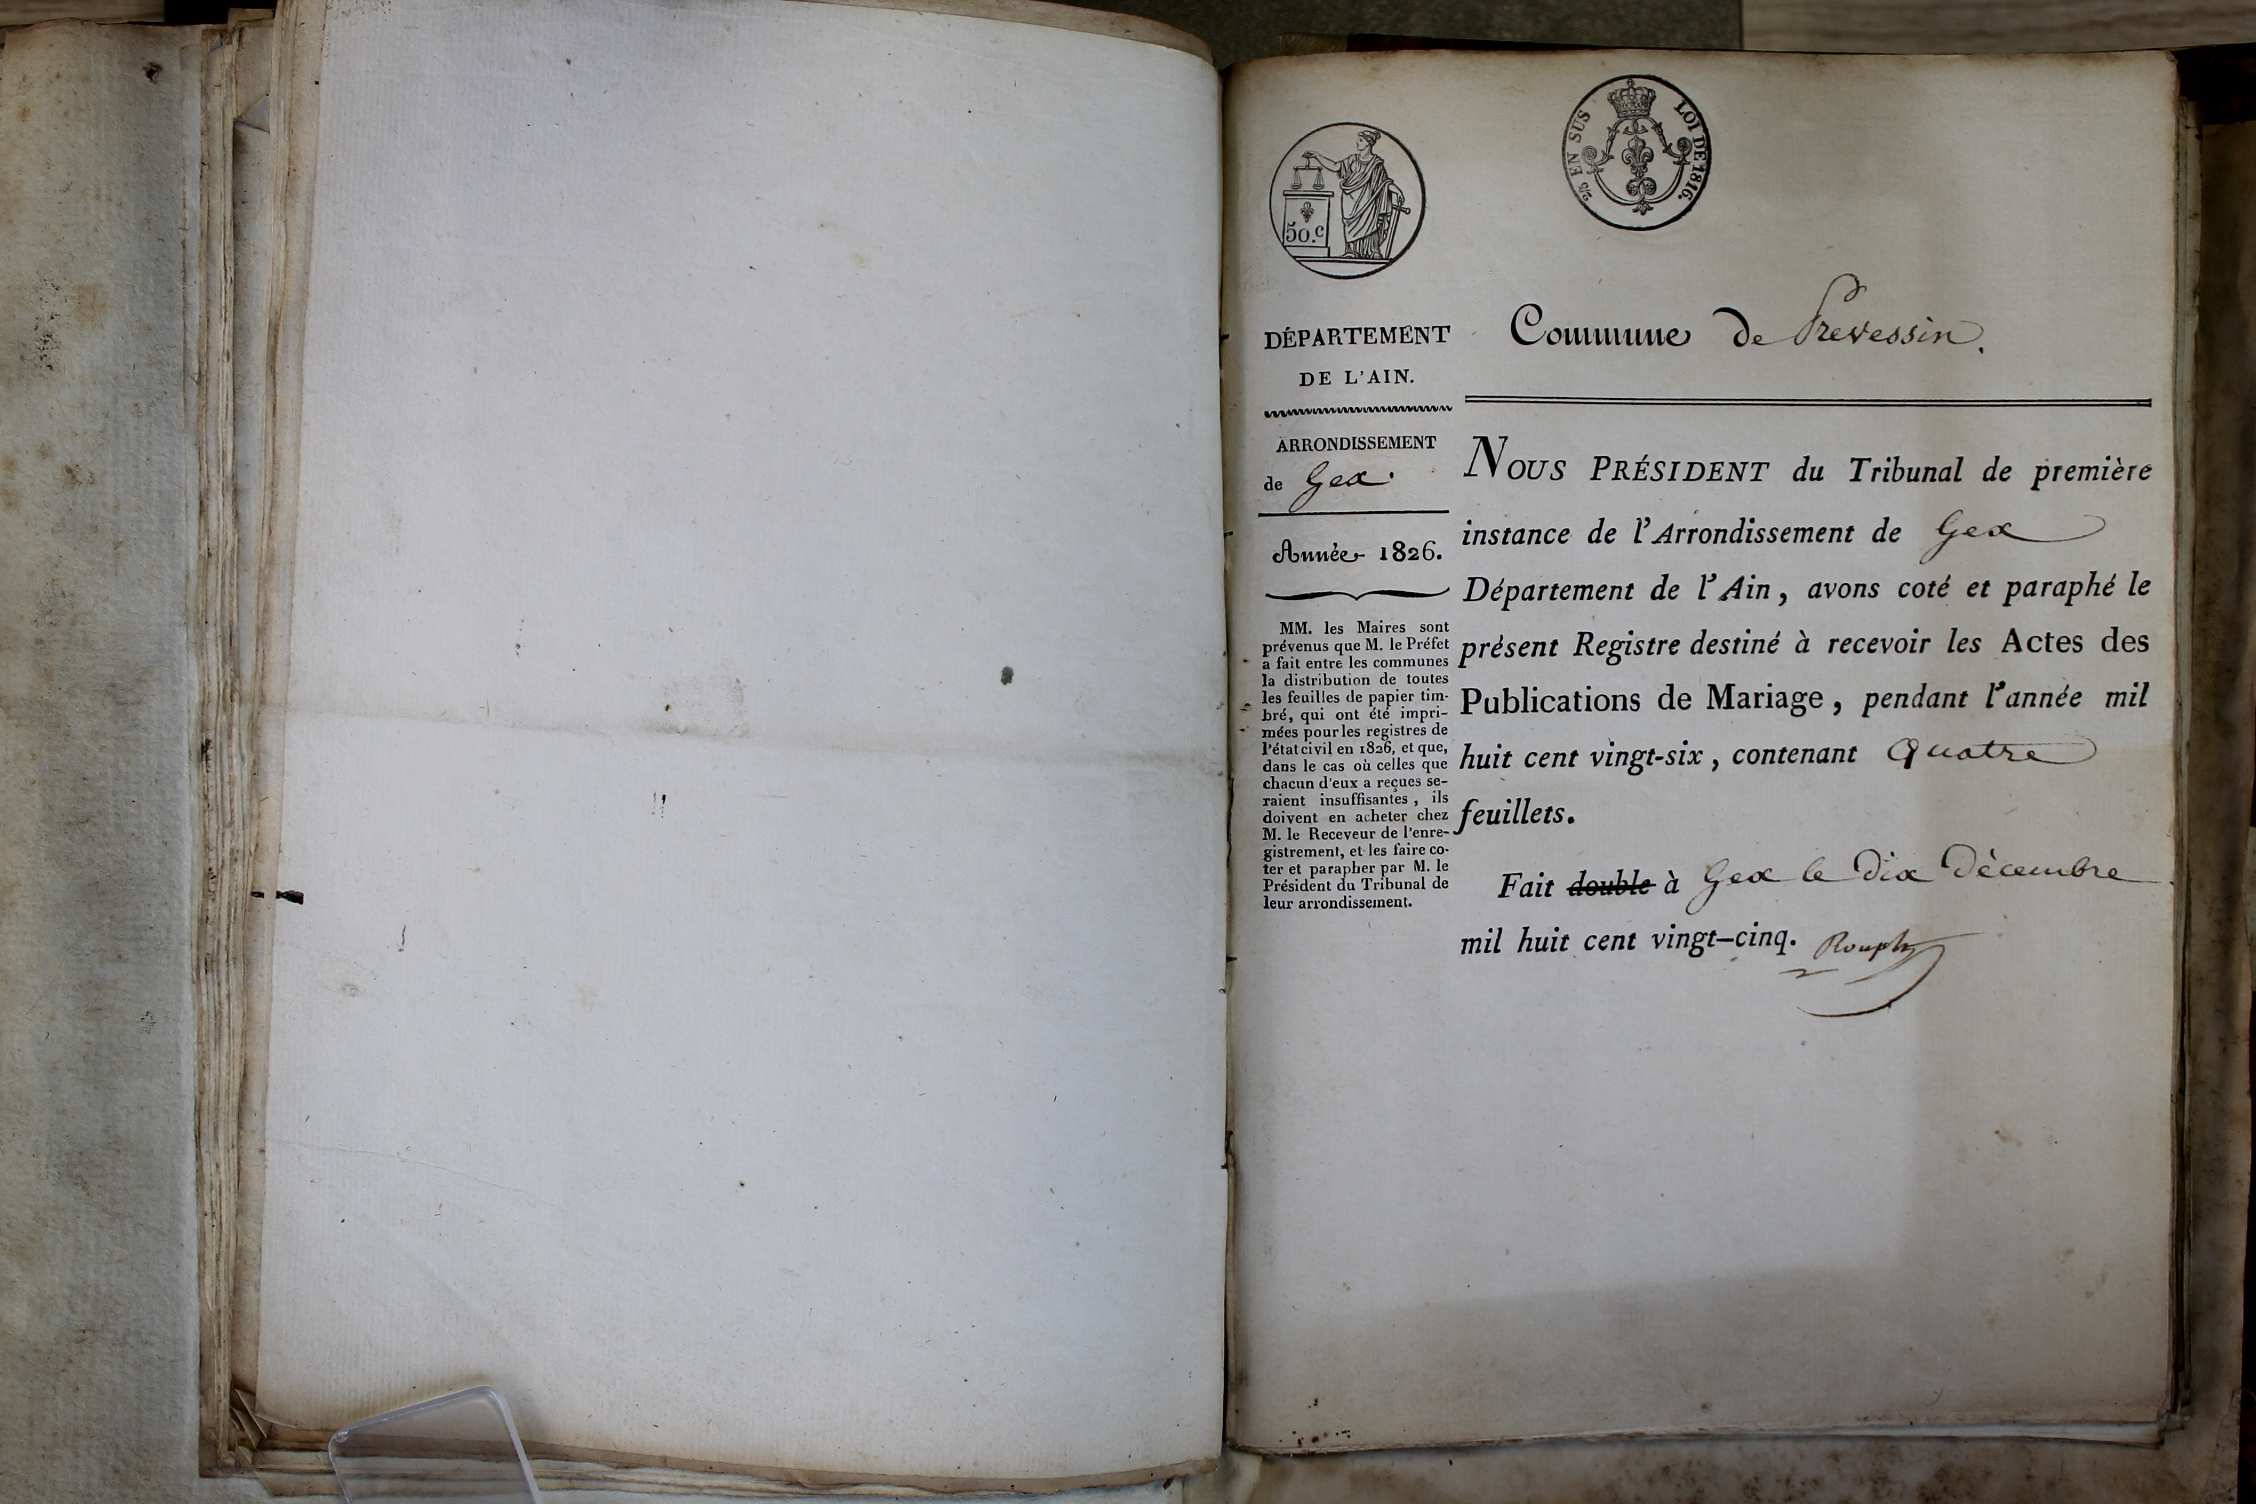 50.c
2/5 EN SUS LOI DE 1816.
DÉPARTEMENT
DE L'AIN.
ARRONDISSEMENT
de Gex.
Année 1826.
MM. les Maires sont
prévenus que M. le Préfet
a fait entre les communes
la distribution de toutes
les feuilles de papier tim-
bré, qui ont été impri-
mées pour les registres de
l'état civil en 1826, et que,
dans le cas où celles que
chacun d'eux a reçues se-
raient insuffisantes, ils
doivent en acheter chez
M. le Receveur de l'enre-
gistrement, et les faire co-
ter et parapher par M. le
Président du Tribunal de
leur arrondissement.
Commune de Prevessin.
NOUS PRÉSIDENT du Tribunal de première
instance de l'Arrondissement de Gex
Département de l'Ain, avons coté et paraphé le
présent Registre destiné à recevoir les Actes des
Publications de Mariage, pendant l'année mil
huit cent vingt-six, contenant Quatre
feuillets.
Fait double à Gex le Dix Décembre
mil huit cent vingt-cinq.